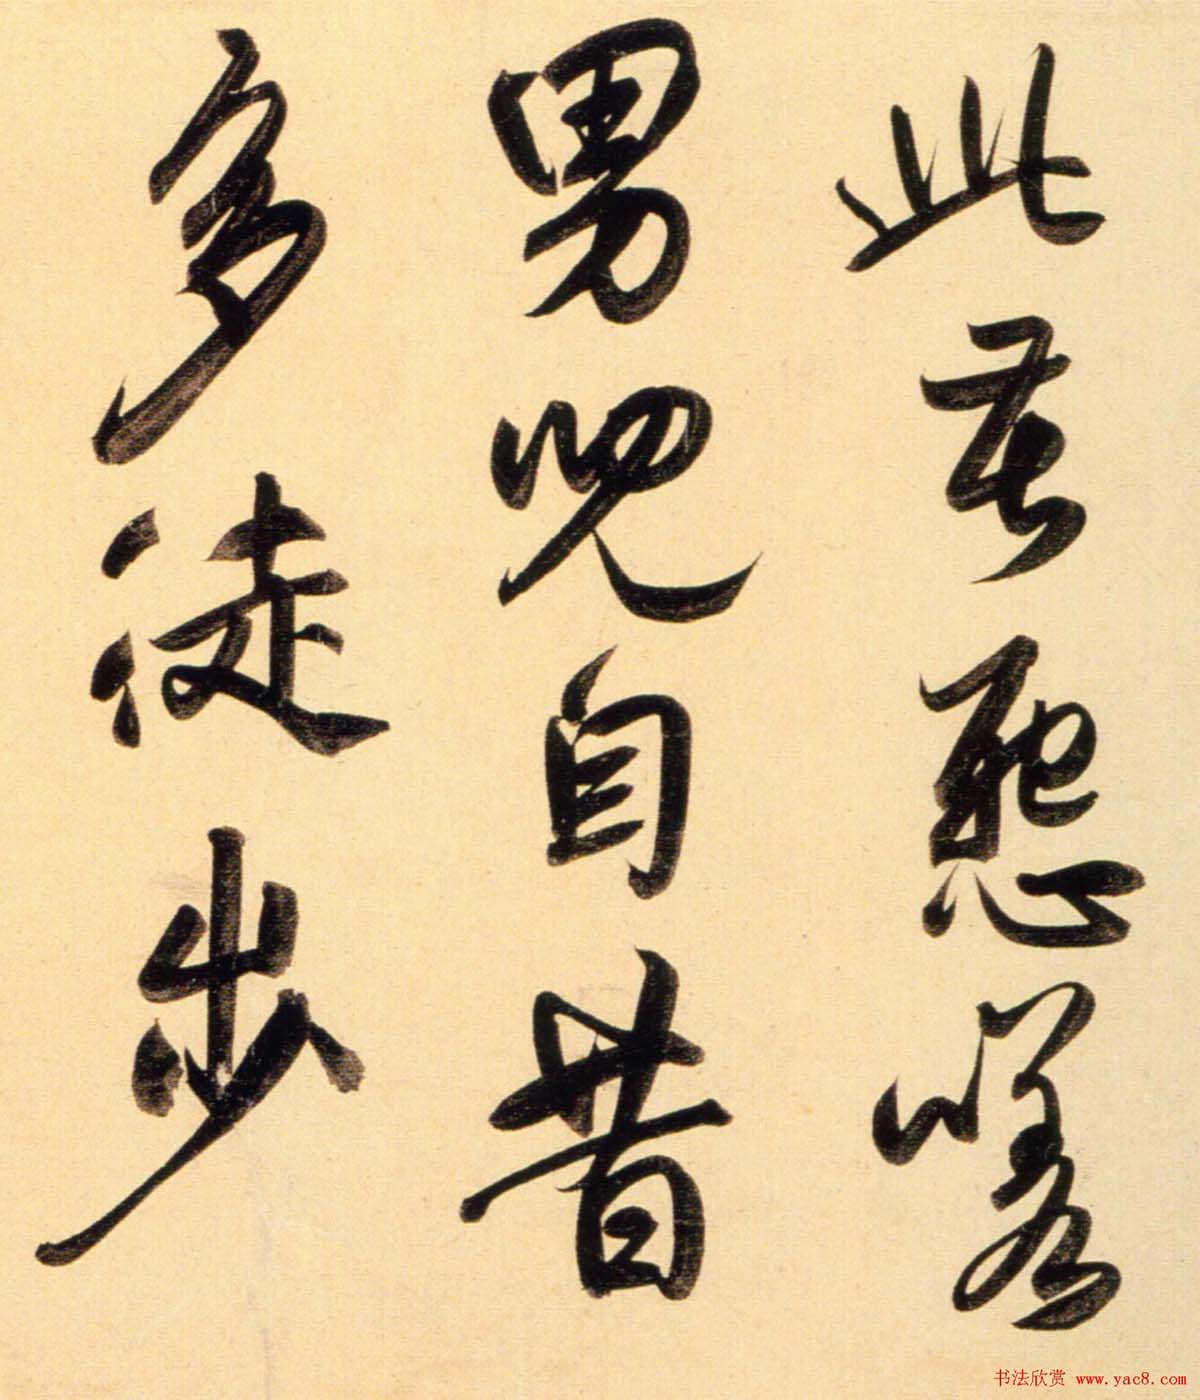 此嗟
男兒自昔
多徒步
书法欣赏 www.yac8.com